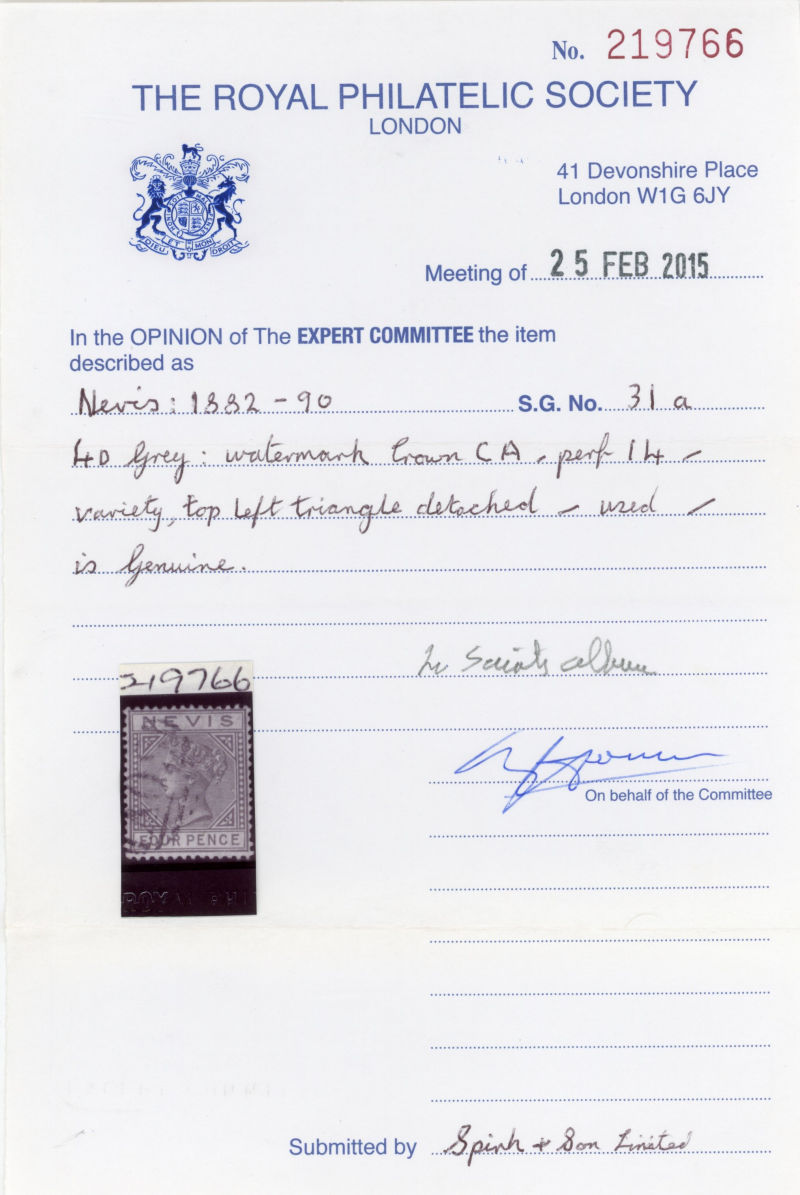 No. 219766
THE ROYAL PHILATELIC SOCIETY
LONDON
41 Devonshire Place
London W1G 6JY
DIEU ET MON DROIT
Meeting of 25 FEB 2015
In the OPINION of The EXPERT COMMITTEE the item
described as
Nevis: 1882 - 90 S.G. No. 31a
4D Grey: watermark Crown CA - perf 14 -
variety, top left triangle detached - used -
is Genuine.
album
219766
NEVIS
FOUR PENCE
ROYAL PHI
On behalf of the Committee
Submitted by Spink + Son Limited